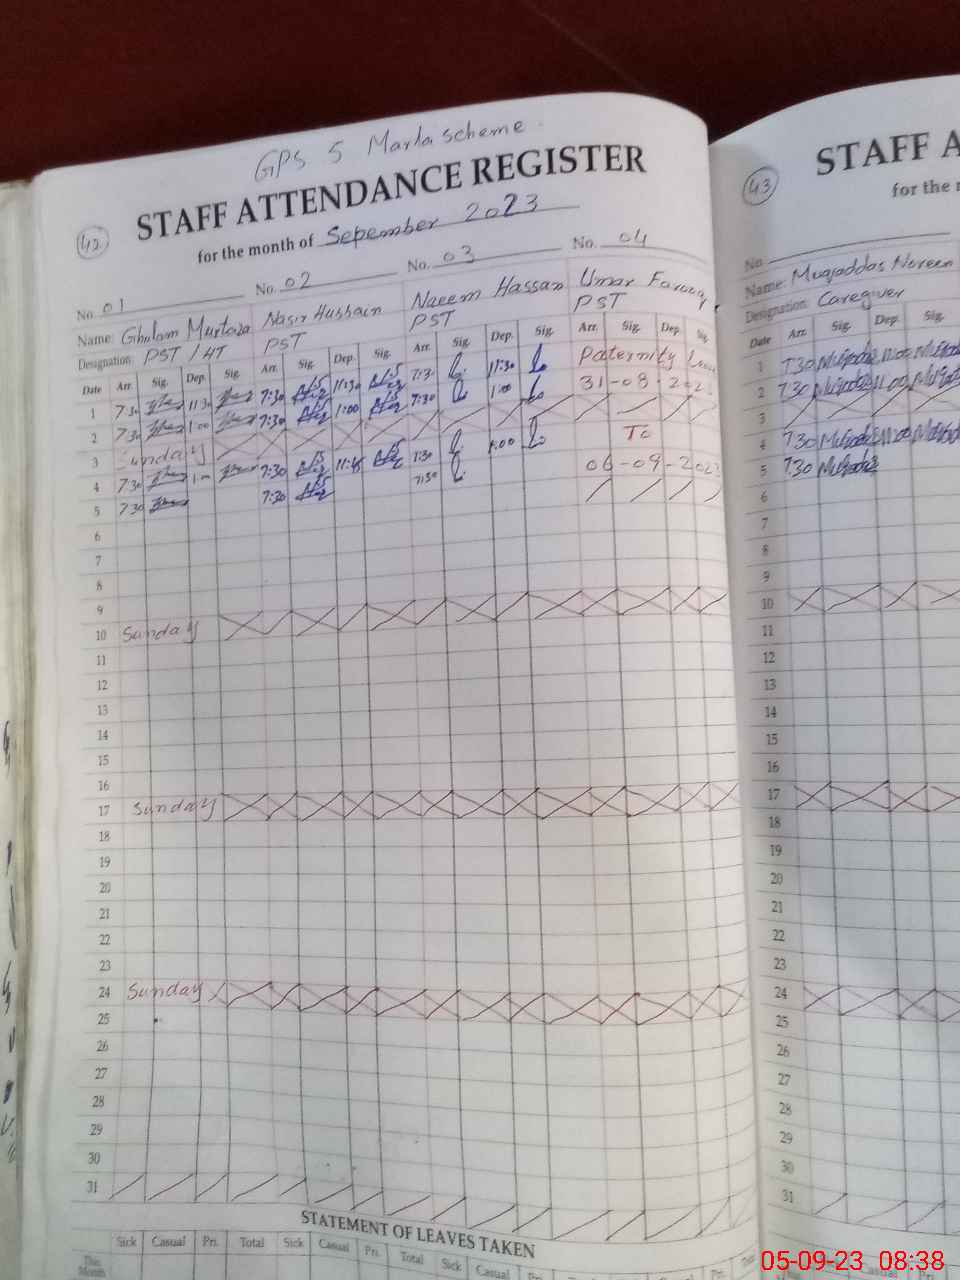 GPS 5 Marla scheme
STAFF ATTENDANCE REGISTER
42
for the month of Sepember 2023
No. 01 No. 02 No. 03 No. 04
Name: Ghulam Murtaza Nasir Hussain Naeem Hassan Umar Farooq
Designation: PST / HT PST PST PST
Date Arr. Sig. Dep. Sig. Arr. Sig. Dep. Sig. Arr. Sig. Dep. Sig. Arr. Sig. Dep. Sig.
1 7:30 11:30 7:30 11:30 7:30 11:30 Paternity
2 7:30 1:00 7:30 1:00 7:30 1:00 31-08-202
3 Sunday To
4 7:30 7:30 11:45 7:30 1:00 06-09-2023
5 7:30 7:30 7:30
6
7
8
9
10 Sunday
11
12
13
14
15
16
17 Sunday
18
19
20
21
22
23
24 Sunday
25
26
27
28
29
30
31
STATEMENT OF LEAVES TAKEN
Sick Casual Pri. Total Sick Casual Pri. Total Sick Casual Pri. Total Sick Casual Pri.
This Month
43
STAFF A
for the
No.
Name: Muqaddas Noreen
Designation: Caregiver
Date Arr. Sig. Dep. Sig.
1 7:30 11:00
2 7:30 11:00
3
4 7:30 11:00
5 7:30
6
7
8
9
10
11
12
13
14
15
16
17
18
19
20
21
22
23
24
25
26
27
28
29
30
31
Sick Casual Pri.
This Month
05-09-23 08:38